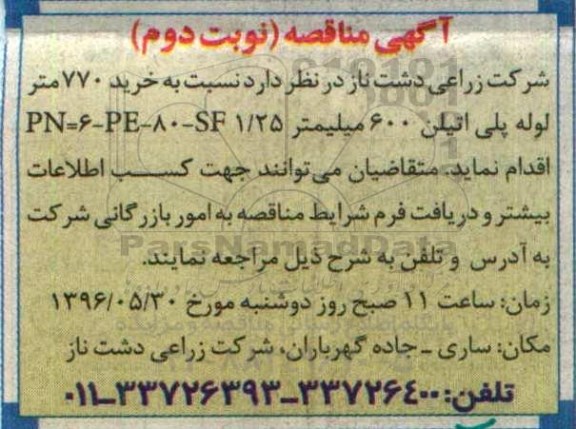 آگهی مناقصه (نوبت دوم)
شرکت زراعی دشت ناز در نظر دارد نسبت به خرید ۷۷۰ متر
لوله پلی اتیلن ۶۰۰ میلیمتر PN=۶-PE-۸۰-SF ۱/۲۵
اقدام نماید. متقاضیان می‌توانند جهت کسب اطلاعات
بیشتر و دریافت فرم شرایط مناقصه به امور بازرگانی شرکت
به آدرس و تلفن به شرح ذیل مراجعه نمایند.
زمان: ساعت ۱۱ صبح روز دوشنبه مورخ ۱۳۹۶/۰۵/۳۰
مکان: ساری ـ جاده گهرباران، شرکت زراعی دشت ناز
تلفن: ۳۳۷۲۶۴۰۰ـ۳۳۷۲۶۳۹۳ـ۰۱۱
ParsNamadData